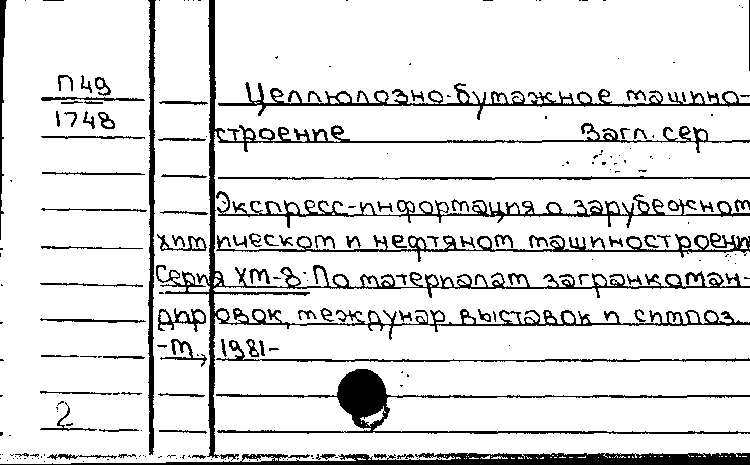 П49
1748
Целлюлозно-бумажное машино-
строение Загл. сер
Экспресс-информация о зарубежном
химическом и нефтяном машиностроени
Серия ХМ-8. По материалам загранкоман-
дировок, междунар. выставок и симпоз.
-М., 1981-
2